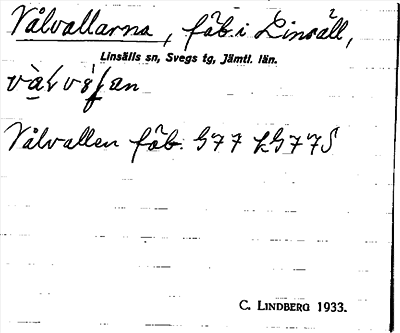 Vålvallarna, fäb. i Linsäll,
Linsälls sn, Svegs tg, Jämtl. län.
Vålvallen fäb. G77
C. LINDBERG 1933.